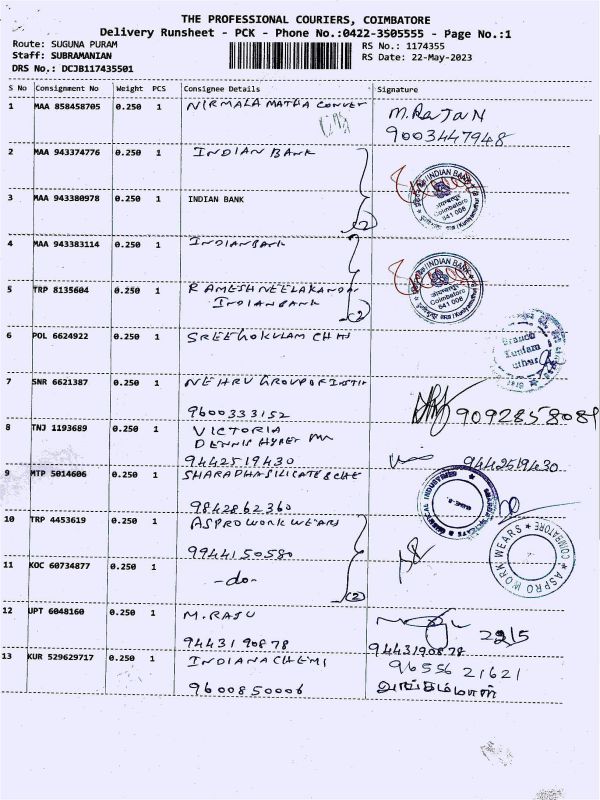 THE PROFESSIONAL COURIERS, COIMBATORE
Delivery Runsheet - PCK - Phone No.:0422-3505555 - Page No.:1
Route: SUGUNA PURAM RS No.: 1174355
Staff: SUBRAMANIAN RS Date: 22-May-2023
DRS No.: DCJB117435501
S No Consignment No Weight PCS Consignee Details Signature
1 MAA 858458705 0.250 1 NIRMALA MATHA CONVET M. RAJAN
9003447948
2 MAA 943374776 0.250 1 INDIAN BANK INDIAN BANK
Coimbatore
641 008
3 MAA 943380978 0.250 1 INDIAN BANK
(2)
4 MAA 943383114 0.250 1 INDIAN BANK INDIAN BANK
Coimbatore
641 008
5 TRP 8135604 0.250 1 RAMESH NEELAKANDAN
INDIAN BANK
(2)
6 POL 6624922 0.250 1 SREEGOKULAM CHITS Branch
7 SNR 6621387 0.250 1 NEHRU GROUP OF INSTIT
9600333152 9092858089
8 TNJ 1193689 0.250 1 VICTORIA
DENNIS
9442519430 9442519430
9 MTP 5014606 0.250 1 SHARADHA SILICATE & CHE
9842862360
10 TRP 4453619 0.250 1 ASPRO WORK WEARS ASPRO WORK WEARS
COIMBATORE
9944150580
11 KOC 60734877 0.250 1 -do-
(2)
12 UPT 6048160 0.250 1 M. RAJU 22/5
9443190878 9443190878
13 KUR 529629717 0.250 1 INDIANA CHEMI 96556 21621
9600850006